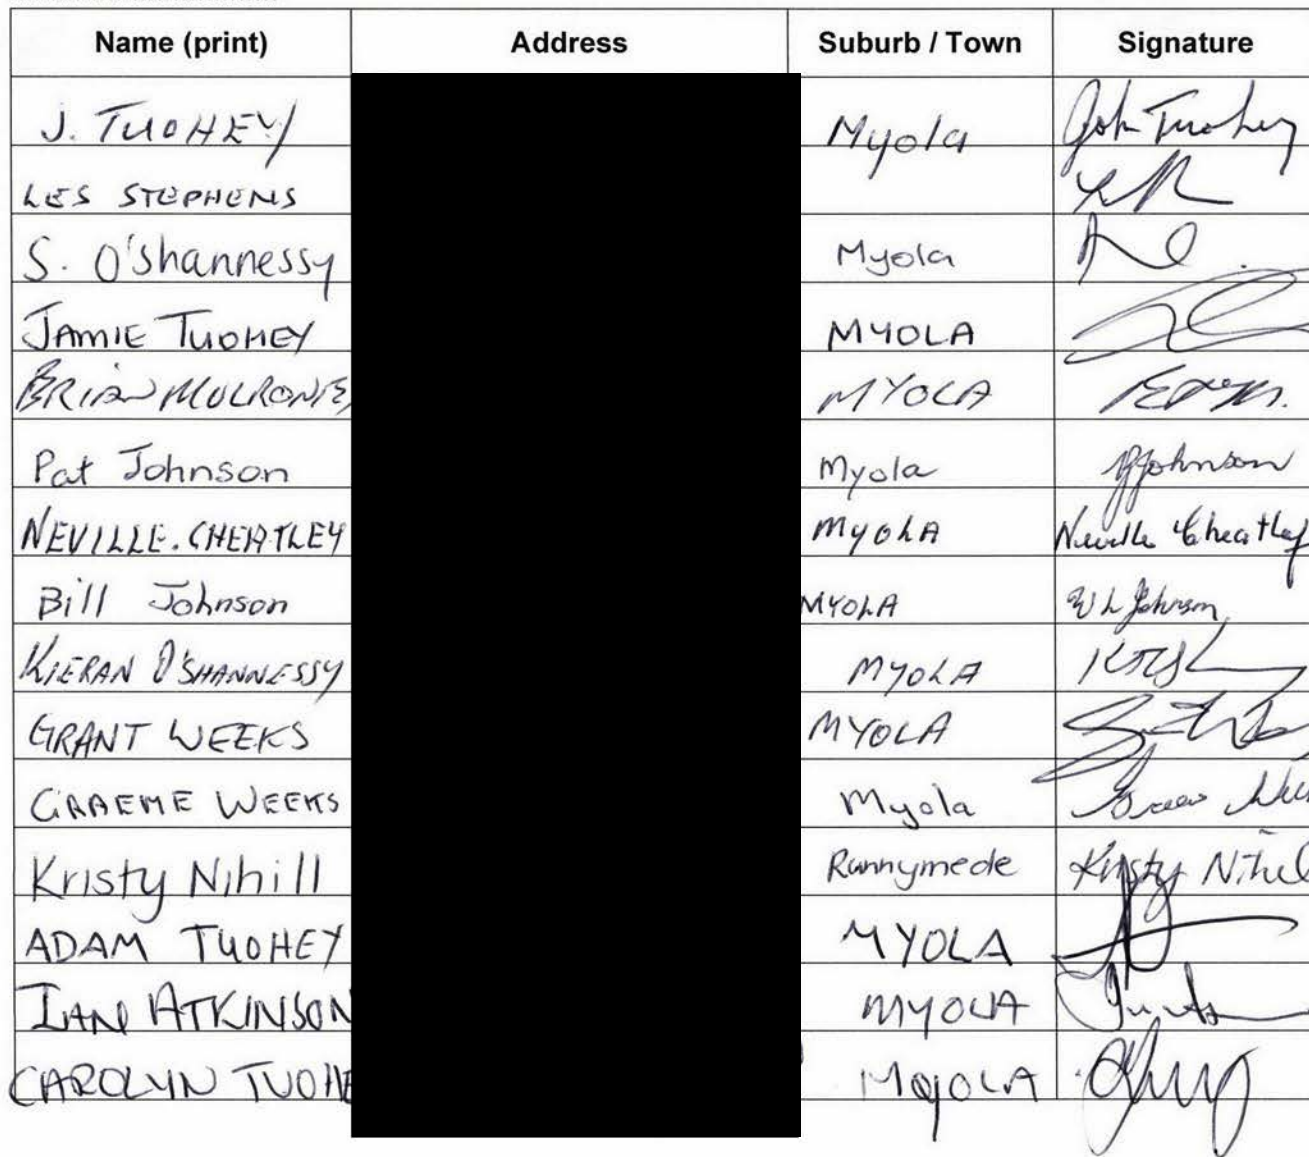 Name (print) Address Suburb / Town Signature
J. TUOHEY Myola John Tuohey
LES STEPHENS
S. O'Shannessy Myola
JAMIE TUOHEY MYOLA
BRIAN MULRONE MYOLA
Pat Johnson Myola PJohnson
NEVILLE. CHEATLEY MYOLA Neville Cheatley
Bill Johnson MYOLA W L Johnson
KIERAN O'SHANNESSY MYOLA
GRANT WEEKS MYOLA
GRAEME WEEKS Myola
Kristy Nihill Runnymede Kristy Nihil
ADAM TUOHEY MYOLA
IAN ATKINSON MYOLA
CAROLYN TUOHE MYOLA